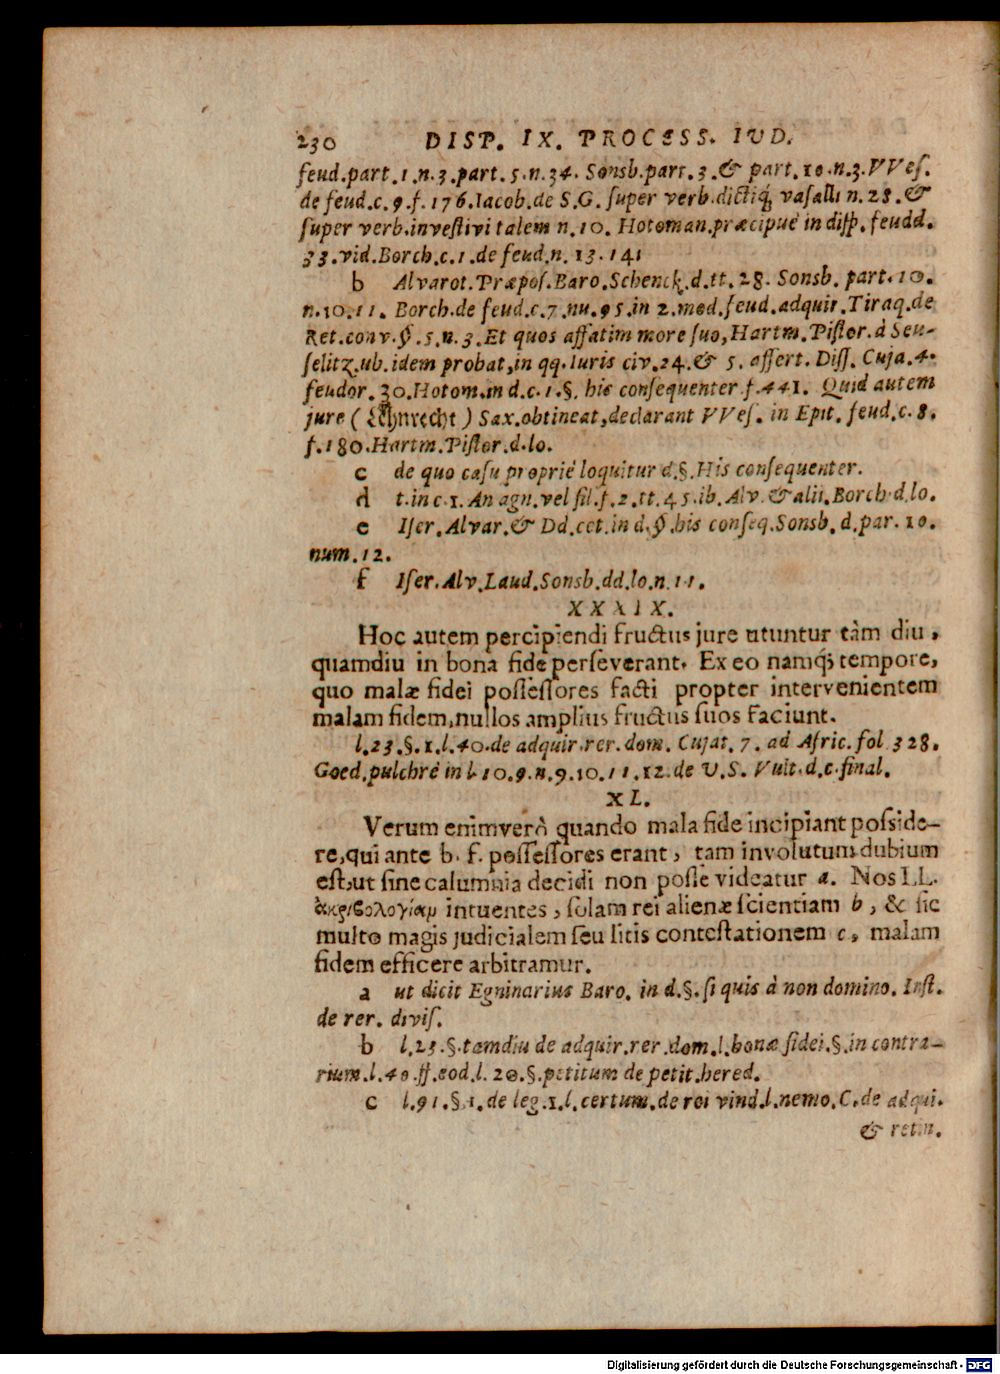 230 DISP. IX. PROCESS. IVD.
feud.part.1.n.3.part.5.n.34. Sonsb.part.3.& part.10.n.3.VVeſ.
de feud.c.9.f.176.Iacob.de S.G. ſuper verb.dictiq́; vaſalli n.28.&
ſuper verb.inveſtivi talem n.10. Hotoman.præcipuè in diſp.feudd.
33.vid.Borch.c.1.de feud.n.13.141
b Alvarot.Præpoſ.Baro.Schenck.d.tt.28. Sonsb. part.10.
n.10.11. Borch.de feud.c.7.nu.95.in 2.med.feud.adquir.Tiraq.de
Ret.conv.§.5.n.3.Et quos affatim more ſuo,Hartm.Piſtor.à Seu-
ſelitz.ub.idem probat,in qq.Iuris civ.24.& 5. aſſert. Diſſ. Cuja.4.
feudor.30.Hotom.in d.c.1.§. his conſequenter f.441. Quid autem
jure (Lehnrecht) Sax.obtineat,declarant VVeſ. in Epit. feud.c.8.
f.180.Hartm.Piſtor.d.lo.
c de quo caſu propriè loquitur d.§.His conſequenter.
d t.in c.1.An agn.vel fil.f.2.tt.45.ib.Alv.& alii.Borch.d.lo.
e Iſer.Alvar.& Dd.cet.in d.§.his conſeq.Sonsb.d.par.10.
num.12.
f Iſer.Alv.Laud.Sonsb.dd.lo.n.11.
XXXIX.
Hoc autem percipiendi fructus jure utuntur tàm diu,
quamdiu in bona fide perſeverant. Ex eo namq́; tempore,
quo malæ fidei poſſeſſores facti propter intervenientem
malam fidem,nullos amplius fructus ſuos faciunt.
l.23.§.1.l.40.de adquir.rer.dom. Cujat.7. ad Afric.fol 328.
Goed.pulchrè in l.10.9.n.9.10.11.12.de V.S. Vult.d.c.final.
XL.
Verum enimverò quando mala fide incipiant poſside-
re,qui ante b. f. poſſeſſores erant, tam involutum dubium
eſt,ut ſine calumnia decidi non poſſe videatur a. Nos LL.
ἀκριβολογίαμ intuentes, ſolam rei alienæ ſcientiam b, & ſic
multo magis judicialem ſeu litis conteſtationem c, malam
fidem efficere arbitramur.
a ut dicit Eguinarius Baro. in d.§.ſi quis à non domino. Inſt.
de rer. diviſ.
b l.23.§.tamdiu de adquir.rer.dom.l.bonæ fidei.§.in contra-
rium.l.40.ff.eod.l.20.§.petitum de petit.hered.
c l.91.§.1.de leg.1.l.certum.de rei vind.l.nemo.C.de adqui.
& retin.
Digitalisierung gefördert durch die Deutsche Forschungsgemeinschaft - DFG